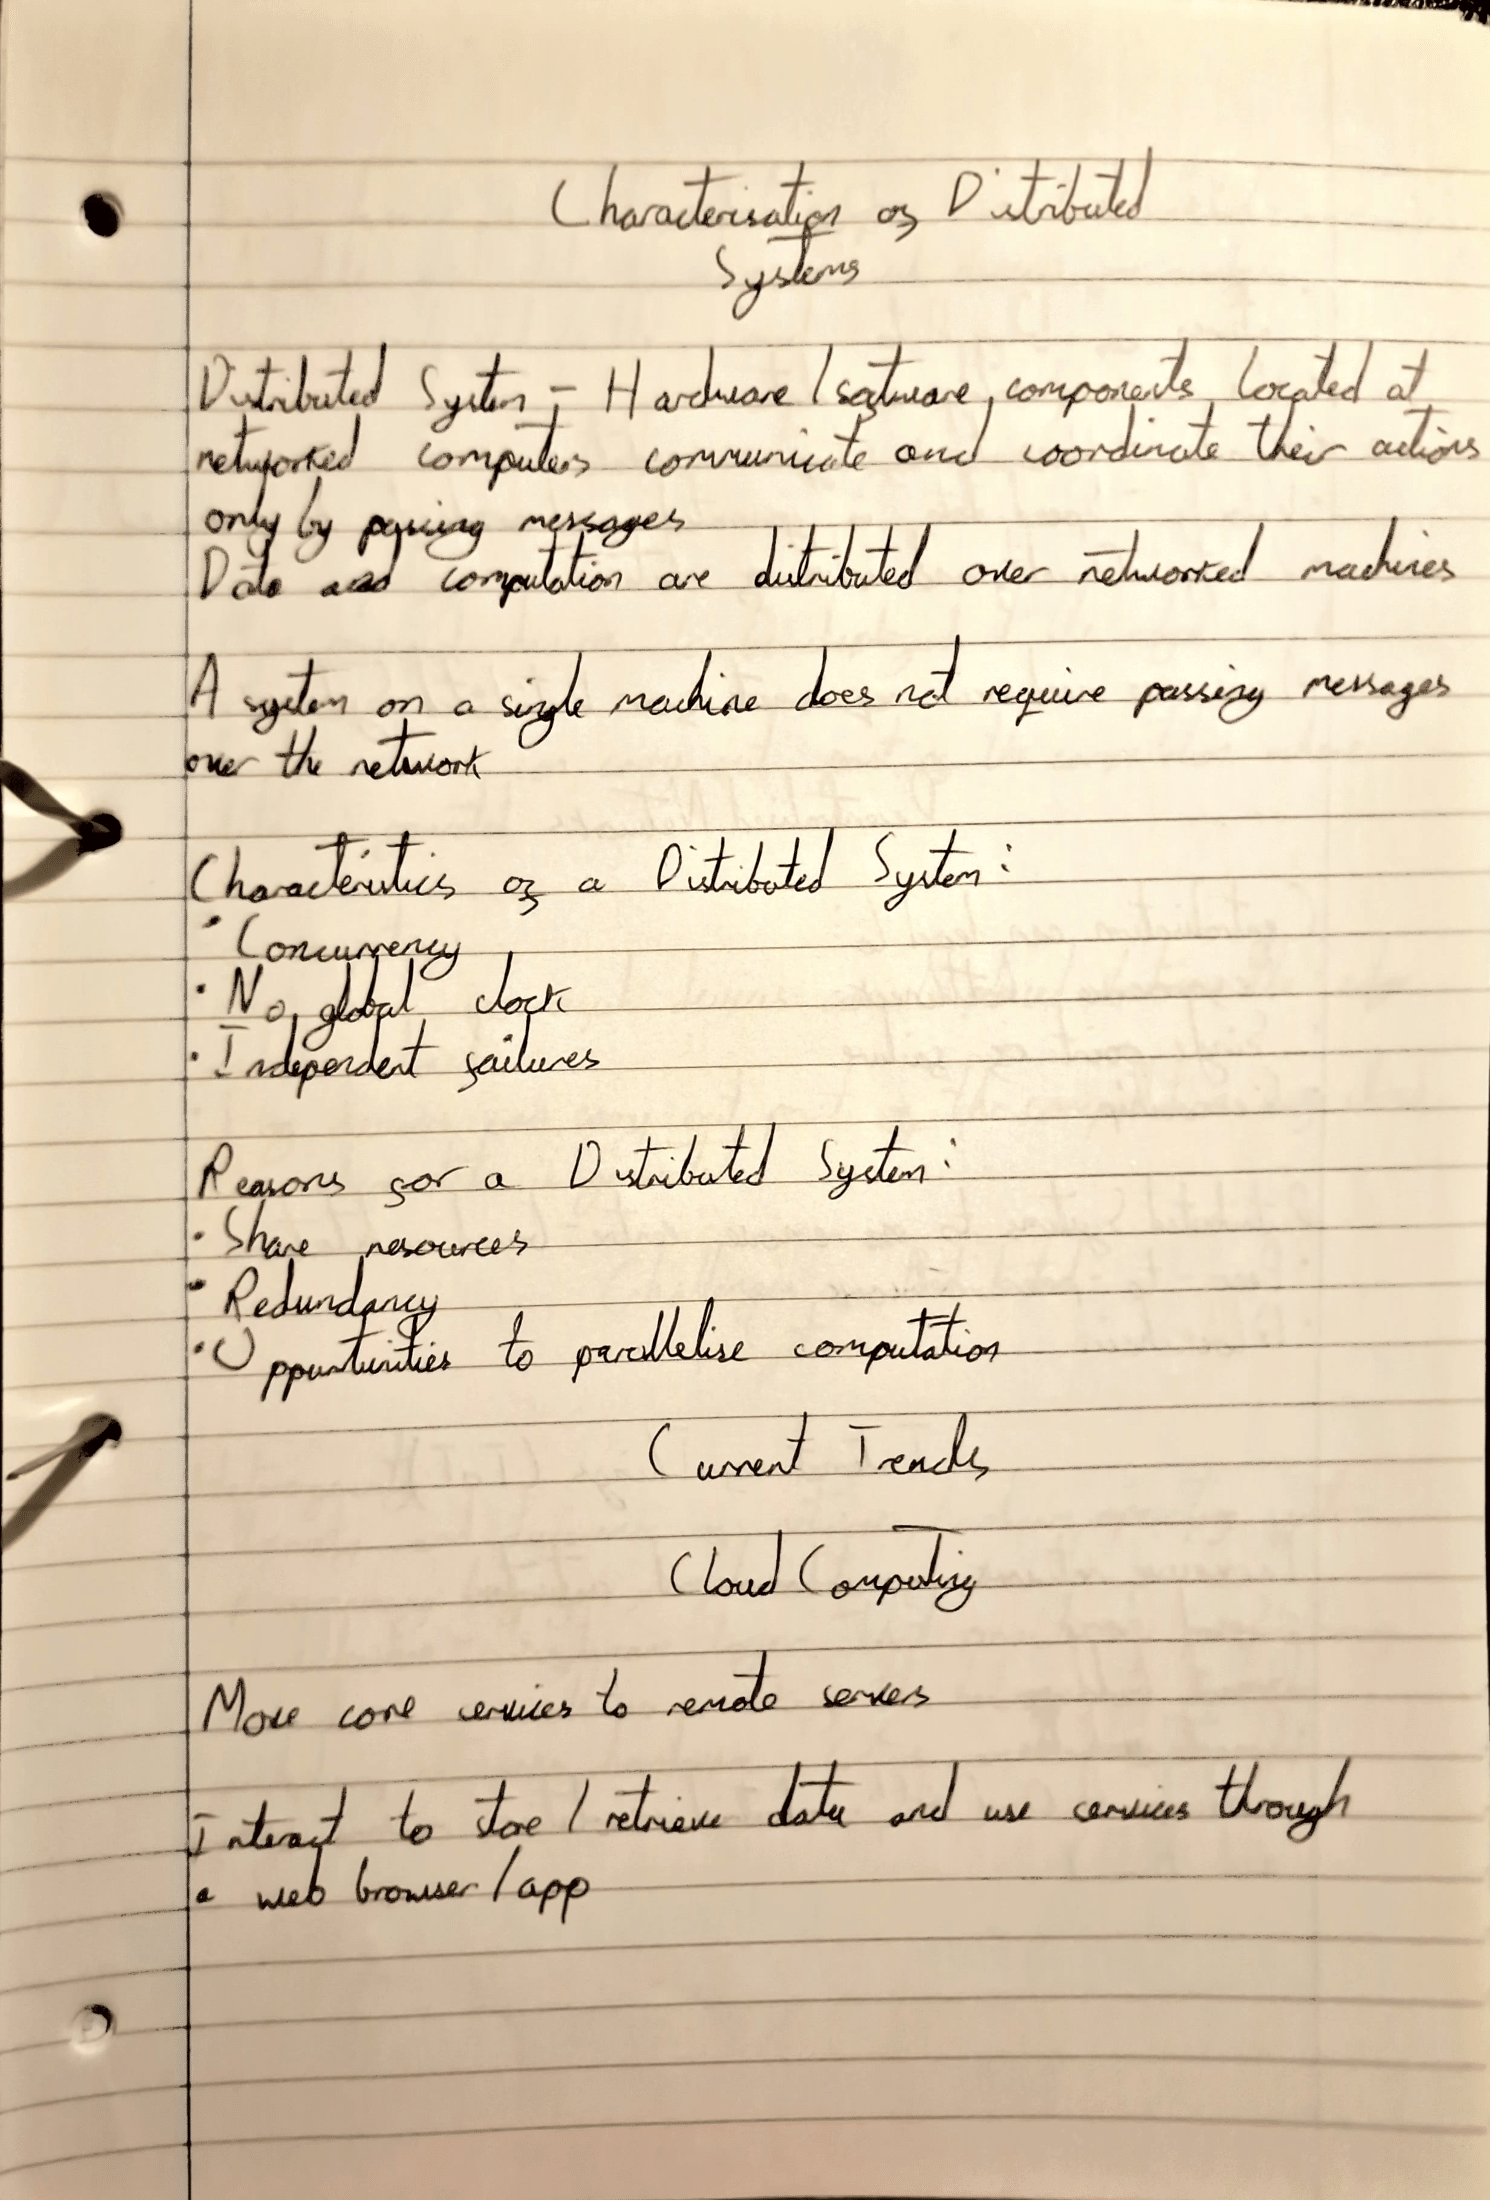 Characterisation of Distributed
Systems
Distributed System - Hardware/software components located at
networked computers communicate and coordinate their actions
only by passing messages
Data and computation are distributed over networked machines
A system on a single machine does not require passing messages
over the network
Characteristics of a Distributed System:
• Concurrency
• No global clock
• Independent failures
Reasons for a Distributed System:
• Share resources
• Redundancy
• Oppurtunities to parallelise computation
Current Trends
Cloud Computing
Move core services to remote servers
Interact to store/retrieve data and use services through
a web browser/app